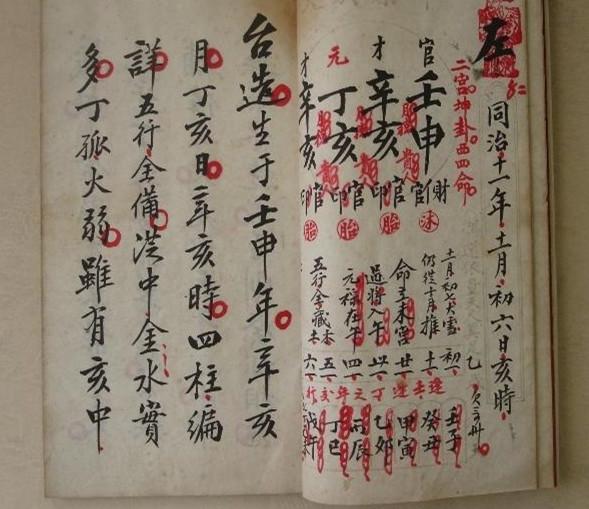 左
同治十一年十一月初六日亥時
二宮坤卦西四命
官 壬申
才 辛亥
元 丁亥
才 辛亥
財官印
官印
官印
官印
沐
胎
胎
胎
十一月初七大雪
仍從十月推
命立未宮
過將入午
元祿在午
五行全藏木土
初一
十一
廿一
卅一
四一
五一
六一
壬子
癸丑
甲寅
乙卯
丙辰
丁巳
戊午
台造生于壬申年辛亥
月丁亥日辛亥時四柱編
詳五行全備洪中金水實
多丁孤火弱雖有亥中